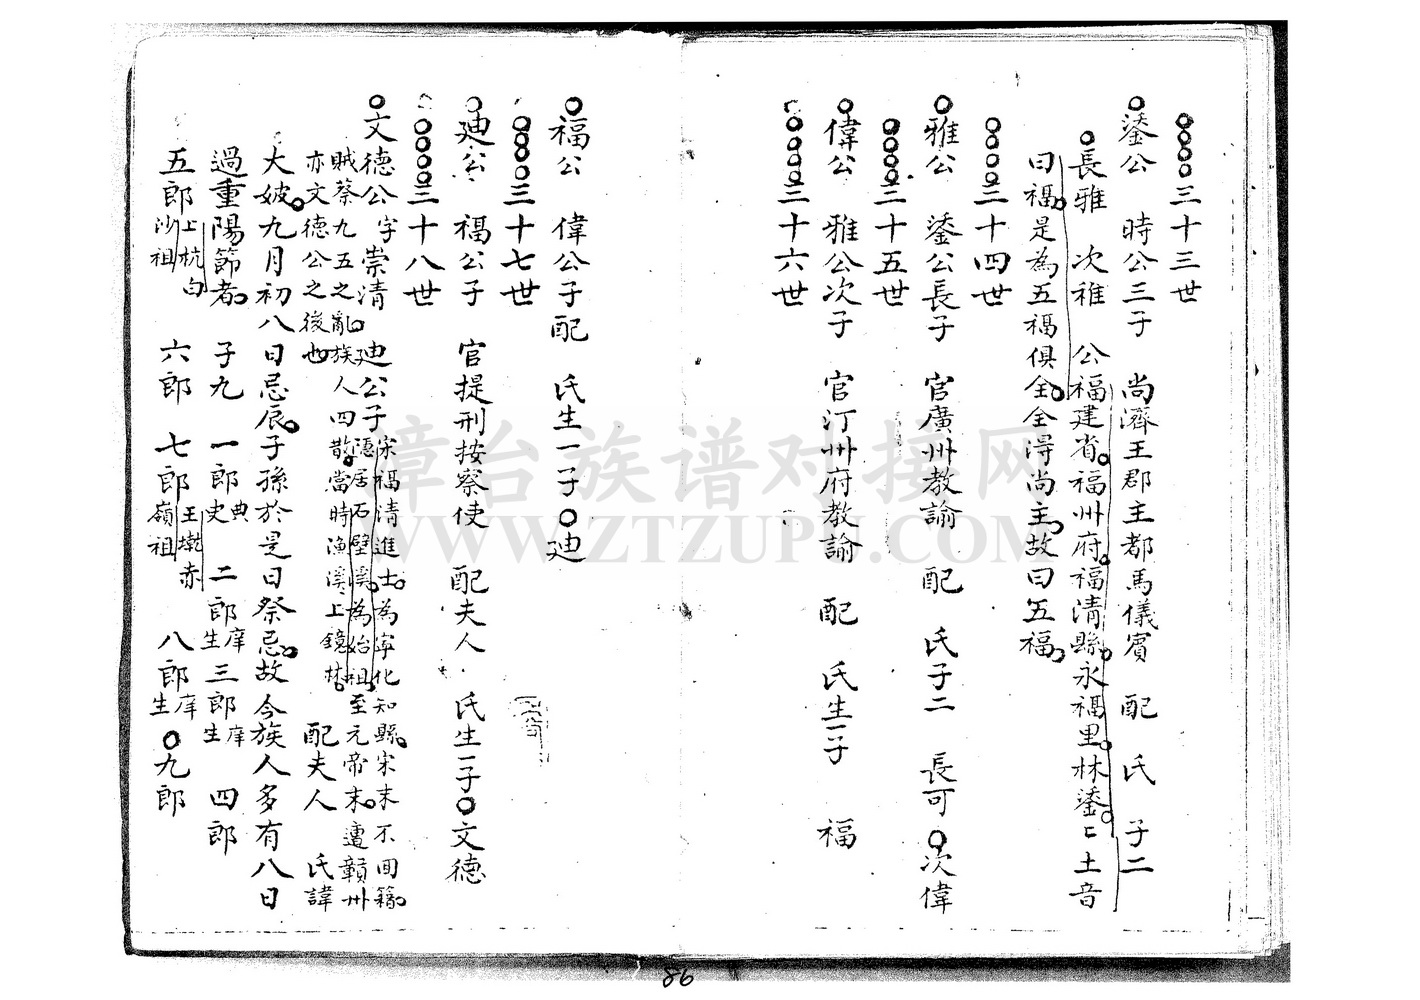 三十三世
鋈公 時公三子 尚濟王郡主都馬儀賓 配 氏 子二
長雅 次稚 公福建省福州府福清縣永福里林鋈 土音
曰福是為五福俱全全得尚主故曰五福
三十四世
雅公 鋈公長子 官廣州教諭 配 氏子二 長可 次偉
三十五世
偉公 雅公次子 官汀州府教諭 配 氏生一子 福
三十六世
福公 偉公子配 氏生一子 廸
三十七世
廸公 福公子 官提刑按察使 配夫人 氏生一子 文德
三十八世
文德公字崇清 廸公子
宋福清進士為寧化知縣宋末不回籍
隱居石壁溪為始祖至元帝末遭贛州
賊蔡九五之亂族人四散當時漁溪上鏡林
亦文德公之後也 配夫人 氏諱
大娘九月初八日忌辰子孫於是日祭忌故今族人多有八日
過重陽節者 子九 一郎典史 二郎庠生 三郎庠生 四郎
五郎上杭白沙祖 六郎 七郎王墩赤嶺祖 八郎庠生 九郎
86
章台族谱对接网
WWW.ZTZUPU.COM